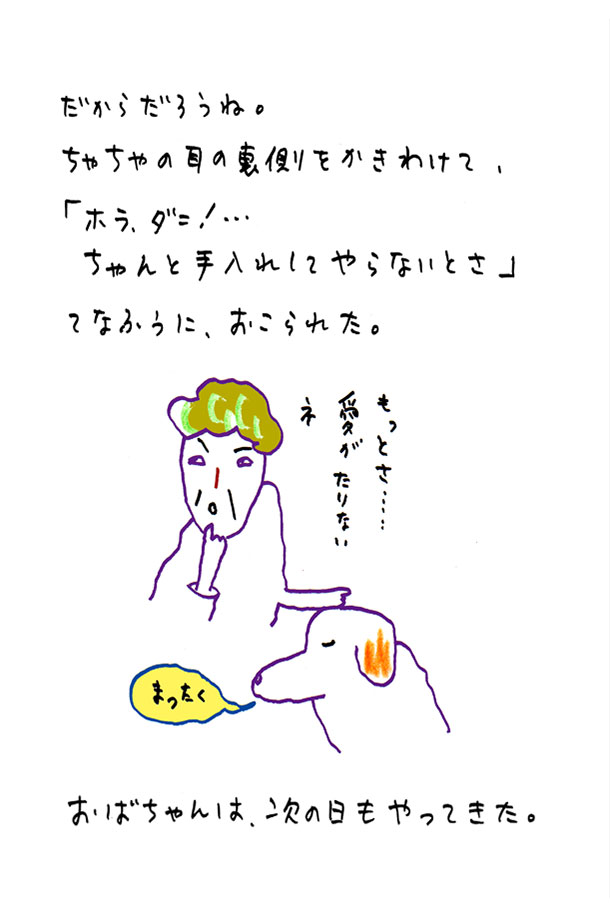 だからだろうね。
ちゃちゃの耳の裏側をかきわけて、
「ホラ、ダニ!…
ちゃんと手入れしてやらないとさ」
てなふうに、おこられた。
もっとさ……
愛がたりない
ネ
まったく
おばちゃんは、次の日もやってきた。